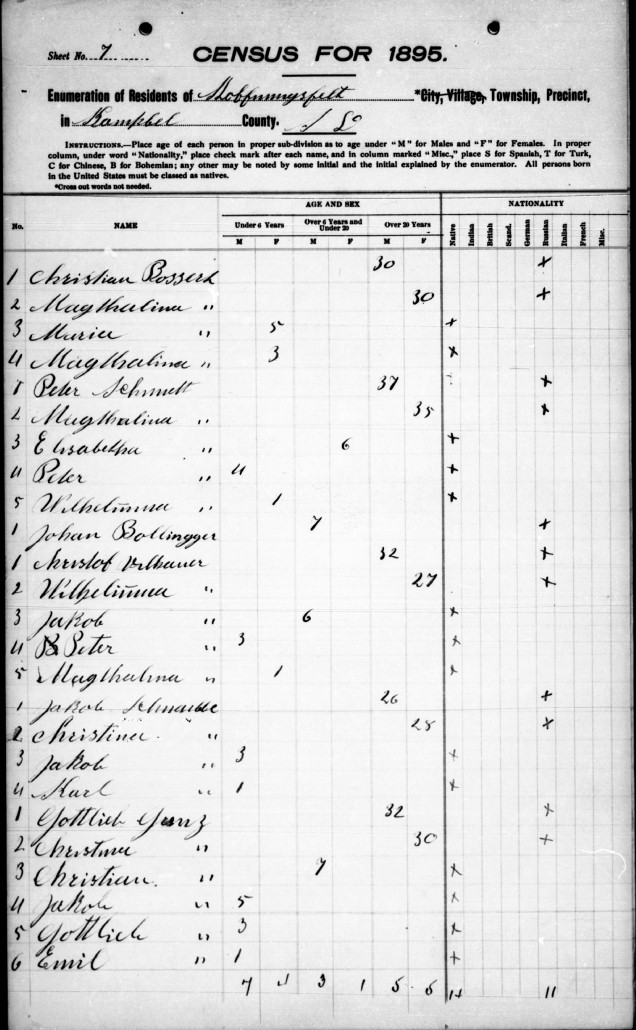 Sheet No. 7
CENSUS FOR 1895.
Enumeration of Residents of Hoffnungsfelt *City, Village, Township, Precinct,
in Kampbel County. S D
INSTRUCTIONS.—Place age of each person in proper sub-division as to age under "M" for Males and "F" for Females. In proper
column, under word "Nationality," place check mark after each name, and in column marked "Misc.," place S for Spanish, T for Turk,
C for Chinese, B for Bohemian; any other may be noted by some initial and the initial explained by the enumerator. All persons born
in the United States must be classed as natives.
*Cross out words not needed.
AGE AND SEX NATIONALITY
No. NAME Under 6 Years Over 6 Years and Under 20 Over 20 Years Native Indian British Scand. German Russian Italian French Misc.
M F M F M F
1 Christian Bossert 30 x
2 Magthalina " 30 x
3 Maria " 5 x
4 Magthalina " 3 x
1 Peter Schmitt 37 x
2 Magthalina " 35 x
3 Elisabetha " 6 x
4 Peter " 4 x
5 Wilhelimina " 1 x
1 Johan Bollingger 7 x
1 32 x
2 Wilhelimina " 27 x
3 Jakob " 6 x
4 Peter " 3 x
5 Magthalina " 1 x
1 Jakob 26 x
2 Christina " 28 x
3 Jakob " 3 x
4 Karl " 1 x
1 Gottlieb 32 x
2 Christina " 30 x
3 Christian " 7 x
4 Jakob " 5 x
5 Gottlieb " 3 x
6 Emil " 1 x
7 4 3 1 5 5 14 11